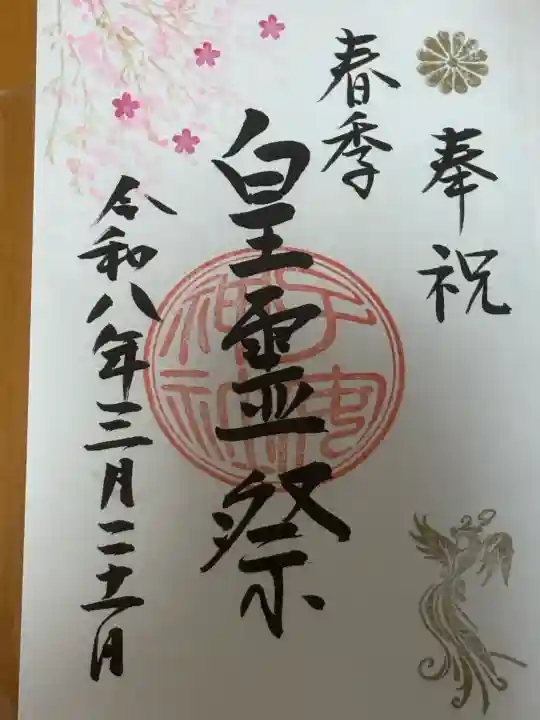 奉祝
春季
皇霊祭
令和八年三月二十一日
神社